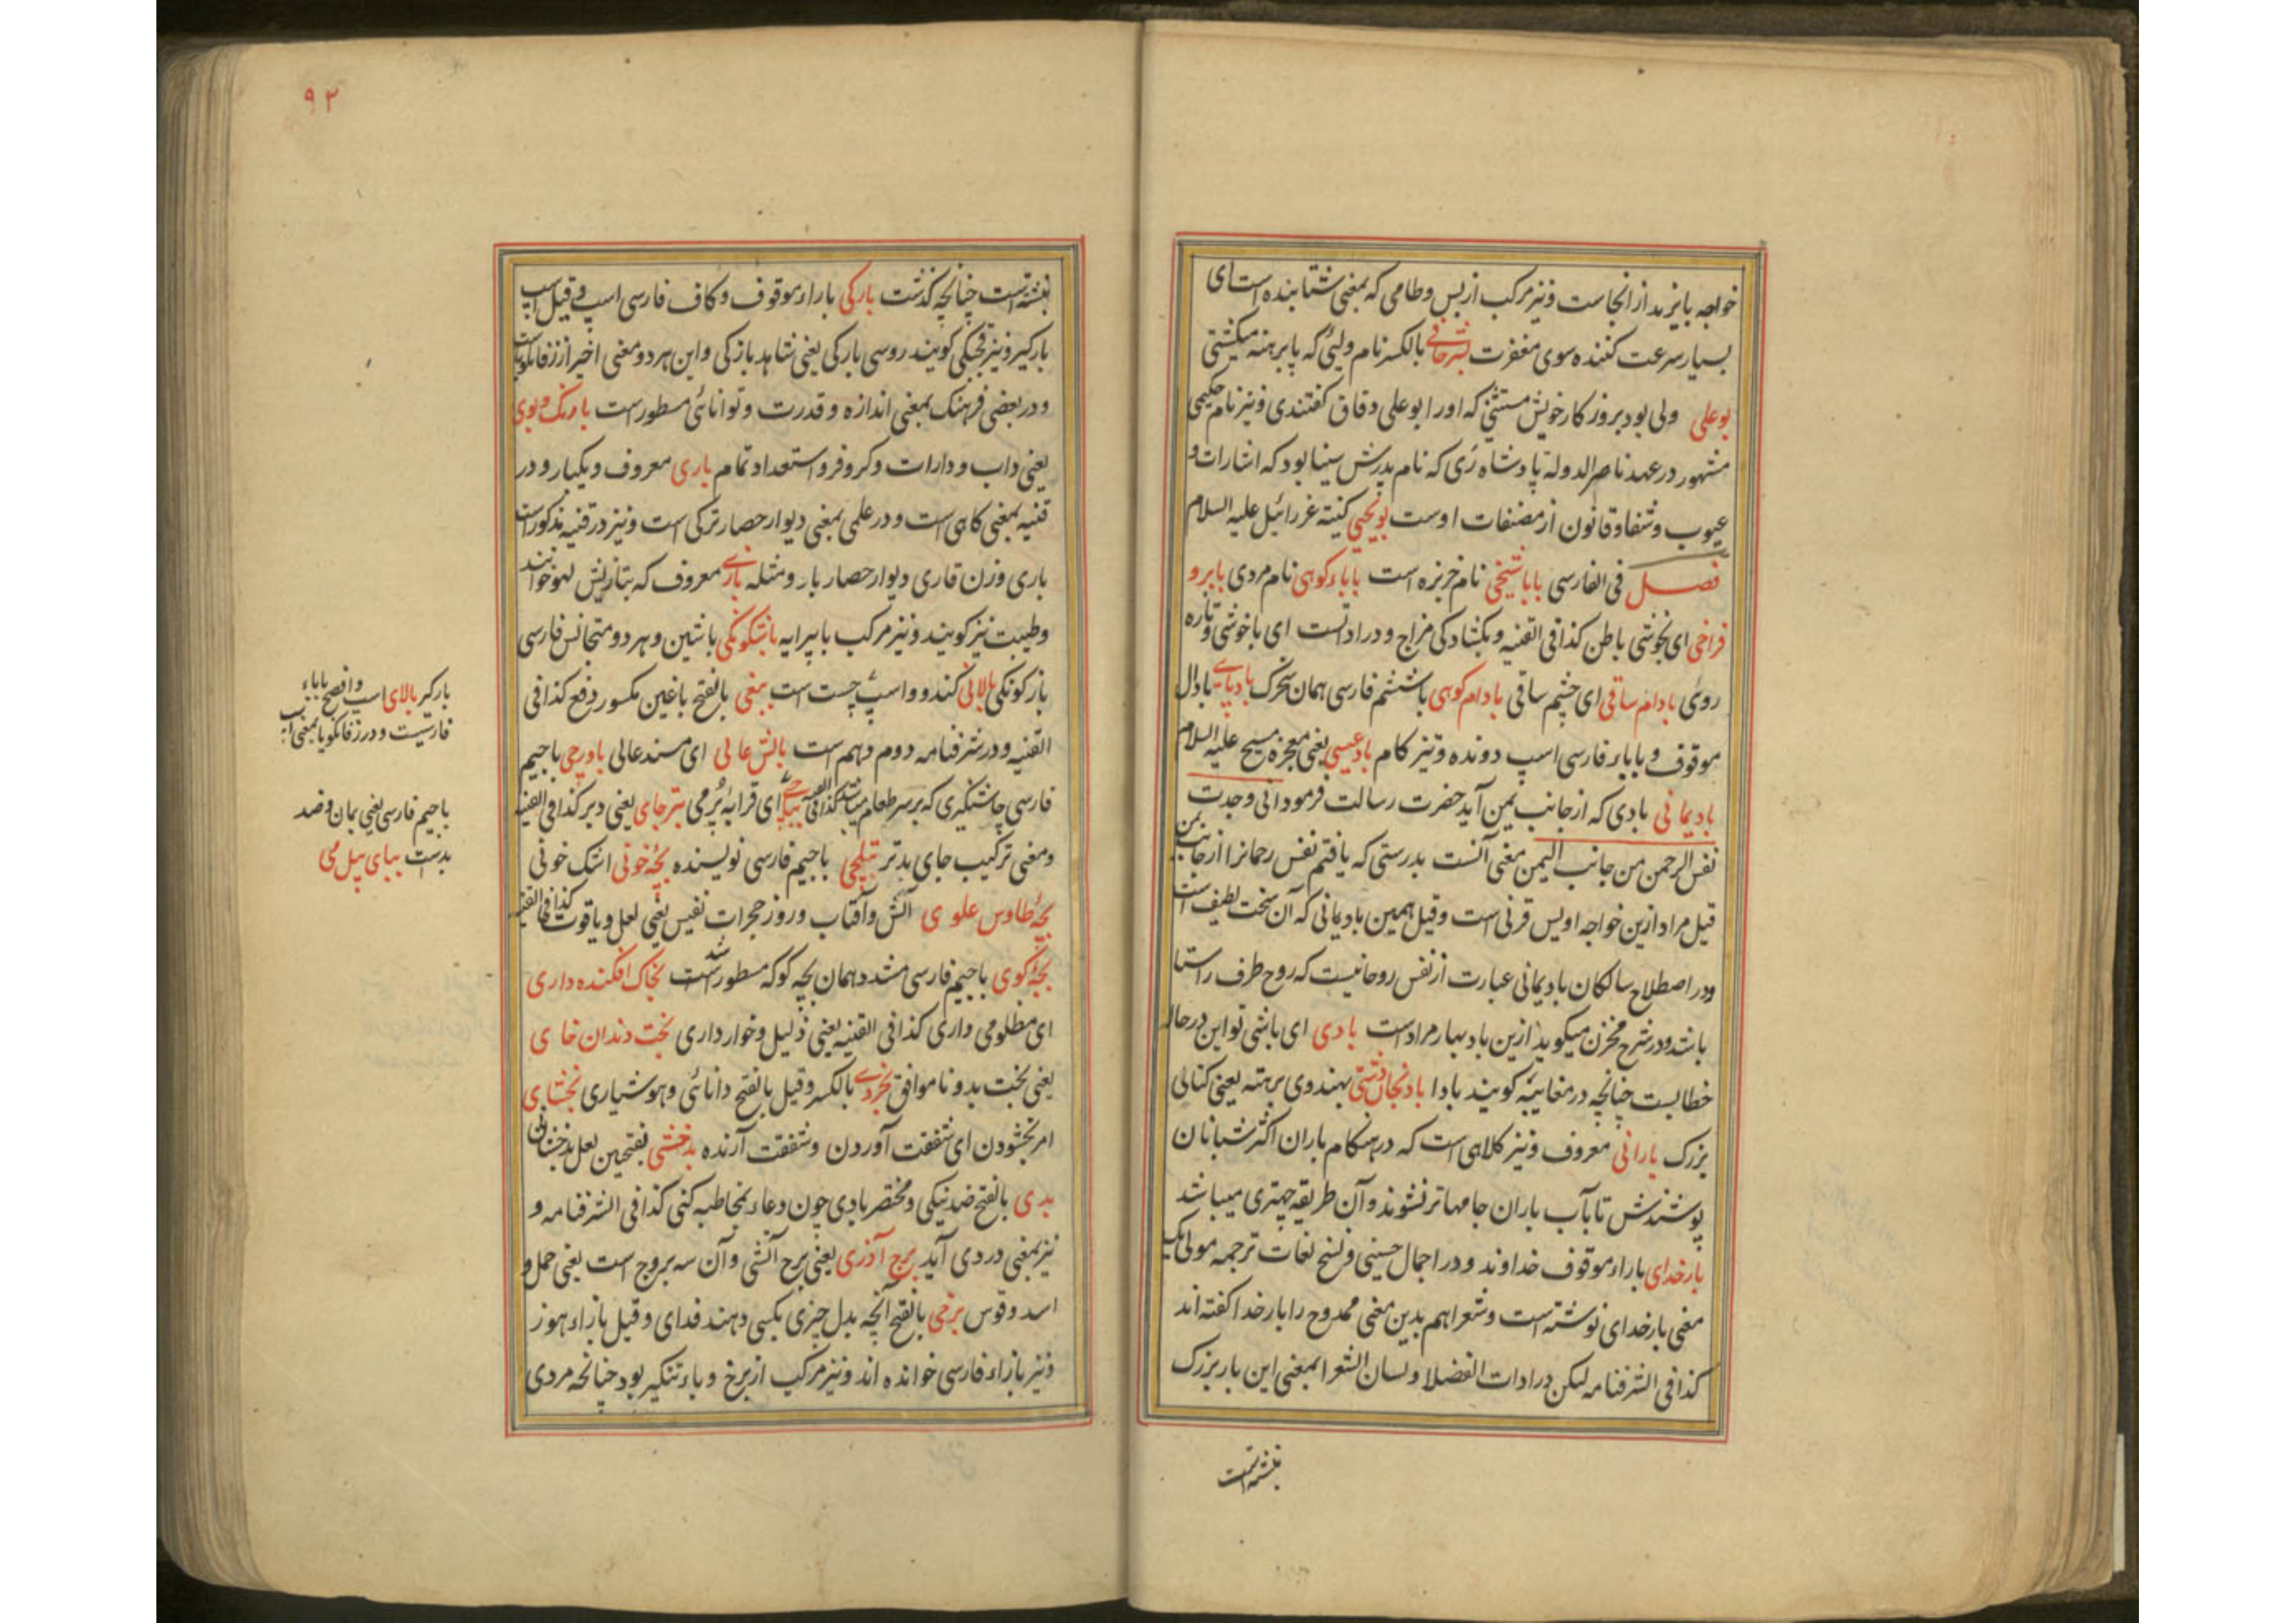 خواجه بایزید از انجاست ونیز مرکب از بس وطامی که بمعنی شتابنده است ای
بسیار سرعت کننده سوی مغفرت بشرحافی بالکسر نام ولیی که پا برهنه میکشتی
بوعلی ولی بود بروزکار خویش مستثنی که اورا بوعلی دقاق کفتندی ونیز نام حکیمی
مشهور در عهد ناصر الدوله پادشاه ری که نام پدرش سینا بود که اشارات و
عیوب وشفا وقانون از مصنفات اوست بویحیی کنیة عزرائیل علیه السلام
فصل فی الفارسی باباشیخی نام خربزه است باباء کوهی نام مردی بابرو
فراخی ای بخوشی باطن کذا فی القنیه وبکشادکی مزاج ودر اداتست ای باخوشی وتازه
روئی بادام ساقی ای چشم ساقی بادام کوهی باششم فارسی همان بادپای بادال
موقوف وباباء فارسی اسپ دونده وتیز کام بادعیسی یعنی معجزه مسیح علیه السلام
بادیمانی بادی که از جانب یمن آید حضرت رسالت فرمود انی وجدت
نفس الرحمن من جانب الیمن معنی آنست بدرستی که یافتم نفس رحمانرا از جانب یمن
قیل مراد ازین خواجه اویس قرنی است وقیل همین بادیمانی که آن سخت لطیف است
ودر اصطلاح سالکان بادیمانی عبارت از نفس روحانیست که روح طرف راستا
باشد ودر شرح مخزن میکوید ازین باد بهار مرادست بادی ای باشی تو این در حاله
خطابست چنانچه در مغایبه کویند بادا بادنجان دشتی بهندوی برهته یعنی کتائی
بزرک بارانی معروف ونیز کلاهی است که در هنکام باران اکثر شبانان
پوشندش تا بآب باران جامها تر نشوند وآن طریقه چتری میباشد
بارخدای باراء موقوف خداوند ودر اجمال حسینی ونسخ لغات ترجمه مولی یک
معنی بارخدای نوشته است وشعرا هم بدین معنی ممدوح را بارخدا کفته اند
کذا فی الشرفنامه لیکن در ادات الفضلا ولسان الشعرا بمعنی این بار بزرک
نبشته است
۹۲
نبشته است چنانچه کذشت بارکی باراء موقوف وکاف فارسی اسپ وقیل اسپ
بارکیر ونیز قحبکی کویند روسی بارکی یعنی شاهد بازکی واین هر دو معنی اخیر از زفانکویاست
ودر بعضی فرهنک بمعنی اندازه وقدرت وتوانائی مسطورست بارنک وبوی
یعنی داب ودارات وکروفر واستعداد تمام باری معروف ویکبار ودر
قنیه بمعنی کاهی است ودر علمی بمعنی دیوار حصار ترکی است ونیز در قنیه مذکور است
باری وزن قاری دیوار حصار بار ومثله بازی معروف که بتازیش لهو خوانند
وطیبت نیز کویند ونیز مرکب با پیرایه باشکونکی باشین وهر دو متجانس فارسی
بازکونکی بالائی کندو واسپ چست است ببغی بالفتح باغین مکسور دفع کذا فی
القنیه ودر شرفنامه دوم دهم است بالش عالی ای مسند عالی باورچی باجیم
فارسی چاشنکیری که بر سر طعام میباشد کذا فی القنیه ای قرابه پر می بترجای یعنی دبر کذا فی القنیه
ومعنی ترکیب جای بدتر بتکچی باجیم فارسی نویسنده بچه خونی اشک خونی
بچه طاوس علوی آتش وآفتاب وروز حجرات نفیس یعنی لعل ویاقوت کذا فی القنیه
بچه کوی باجیم فارسی مشدد همان بچه کوکه مسطور شد بخاک افکنده داری
ای مظلومی داری کذا فی القنیه یعنی ذلیل وخوار داری بخت دندان خای
یعنی بخت بد وناموافق بخردی بالکسر وقیل بالفتح دانائی وهوشیاری بخشای
امر بخشودن ای شفقت آوردن وشفقت آرنده بدخشی بفتحین لعل بدخشان
بدی بالفتح ضد نیکی ومختصر بادی چون دعاء بمخاطبه کنی کذا فی الشرفنامه و
نیز بمعنی در دی آید برج آذری یعنی برج آتشی وآن سه بروج است یعنی حمل و
اسد وقوس برخی بالفتح آنچه بدل چیزی بکسی دهند فدای وقیل بازاء هوز
ونیز بازاء فارسی خوانده اند ونیز مرکب از برخ وباء تنکیر بود چنانچه مردی
بارکیر بالای اسپ وافصح باباء
فارسیست ودر زفانکویا بمعنی
باجیم فارسی یعنی بمان وقصد
بدست بپای پیل می